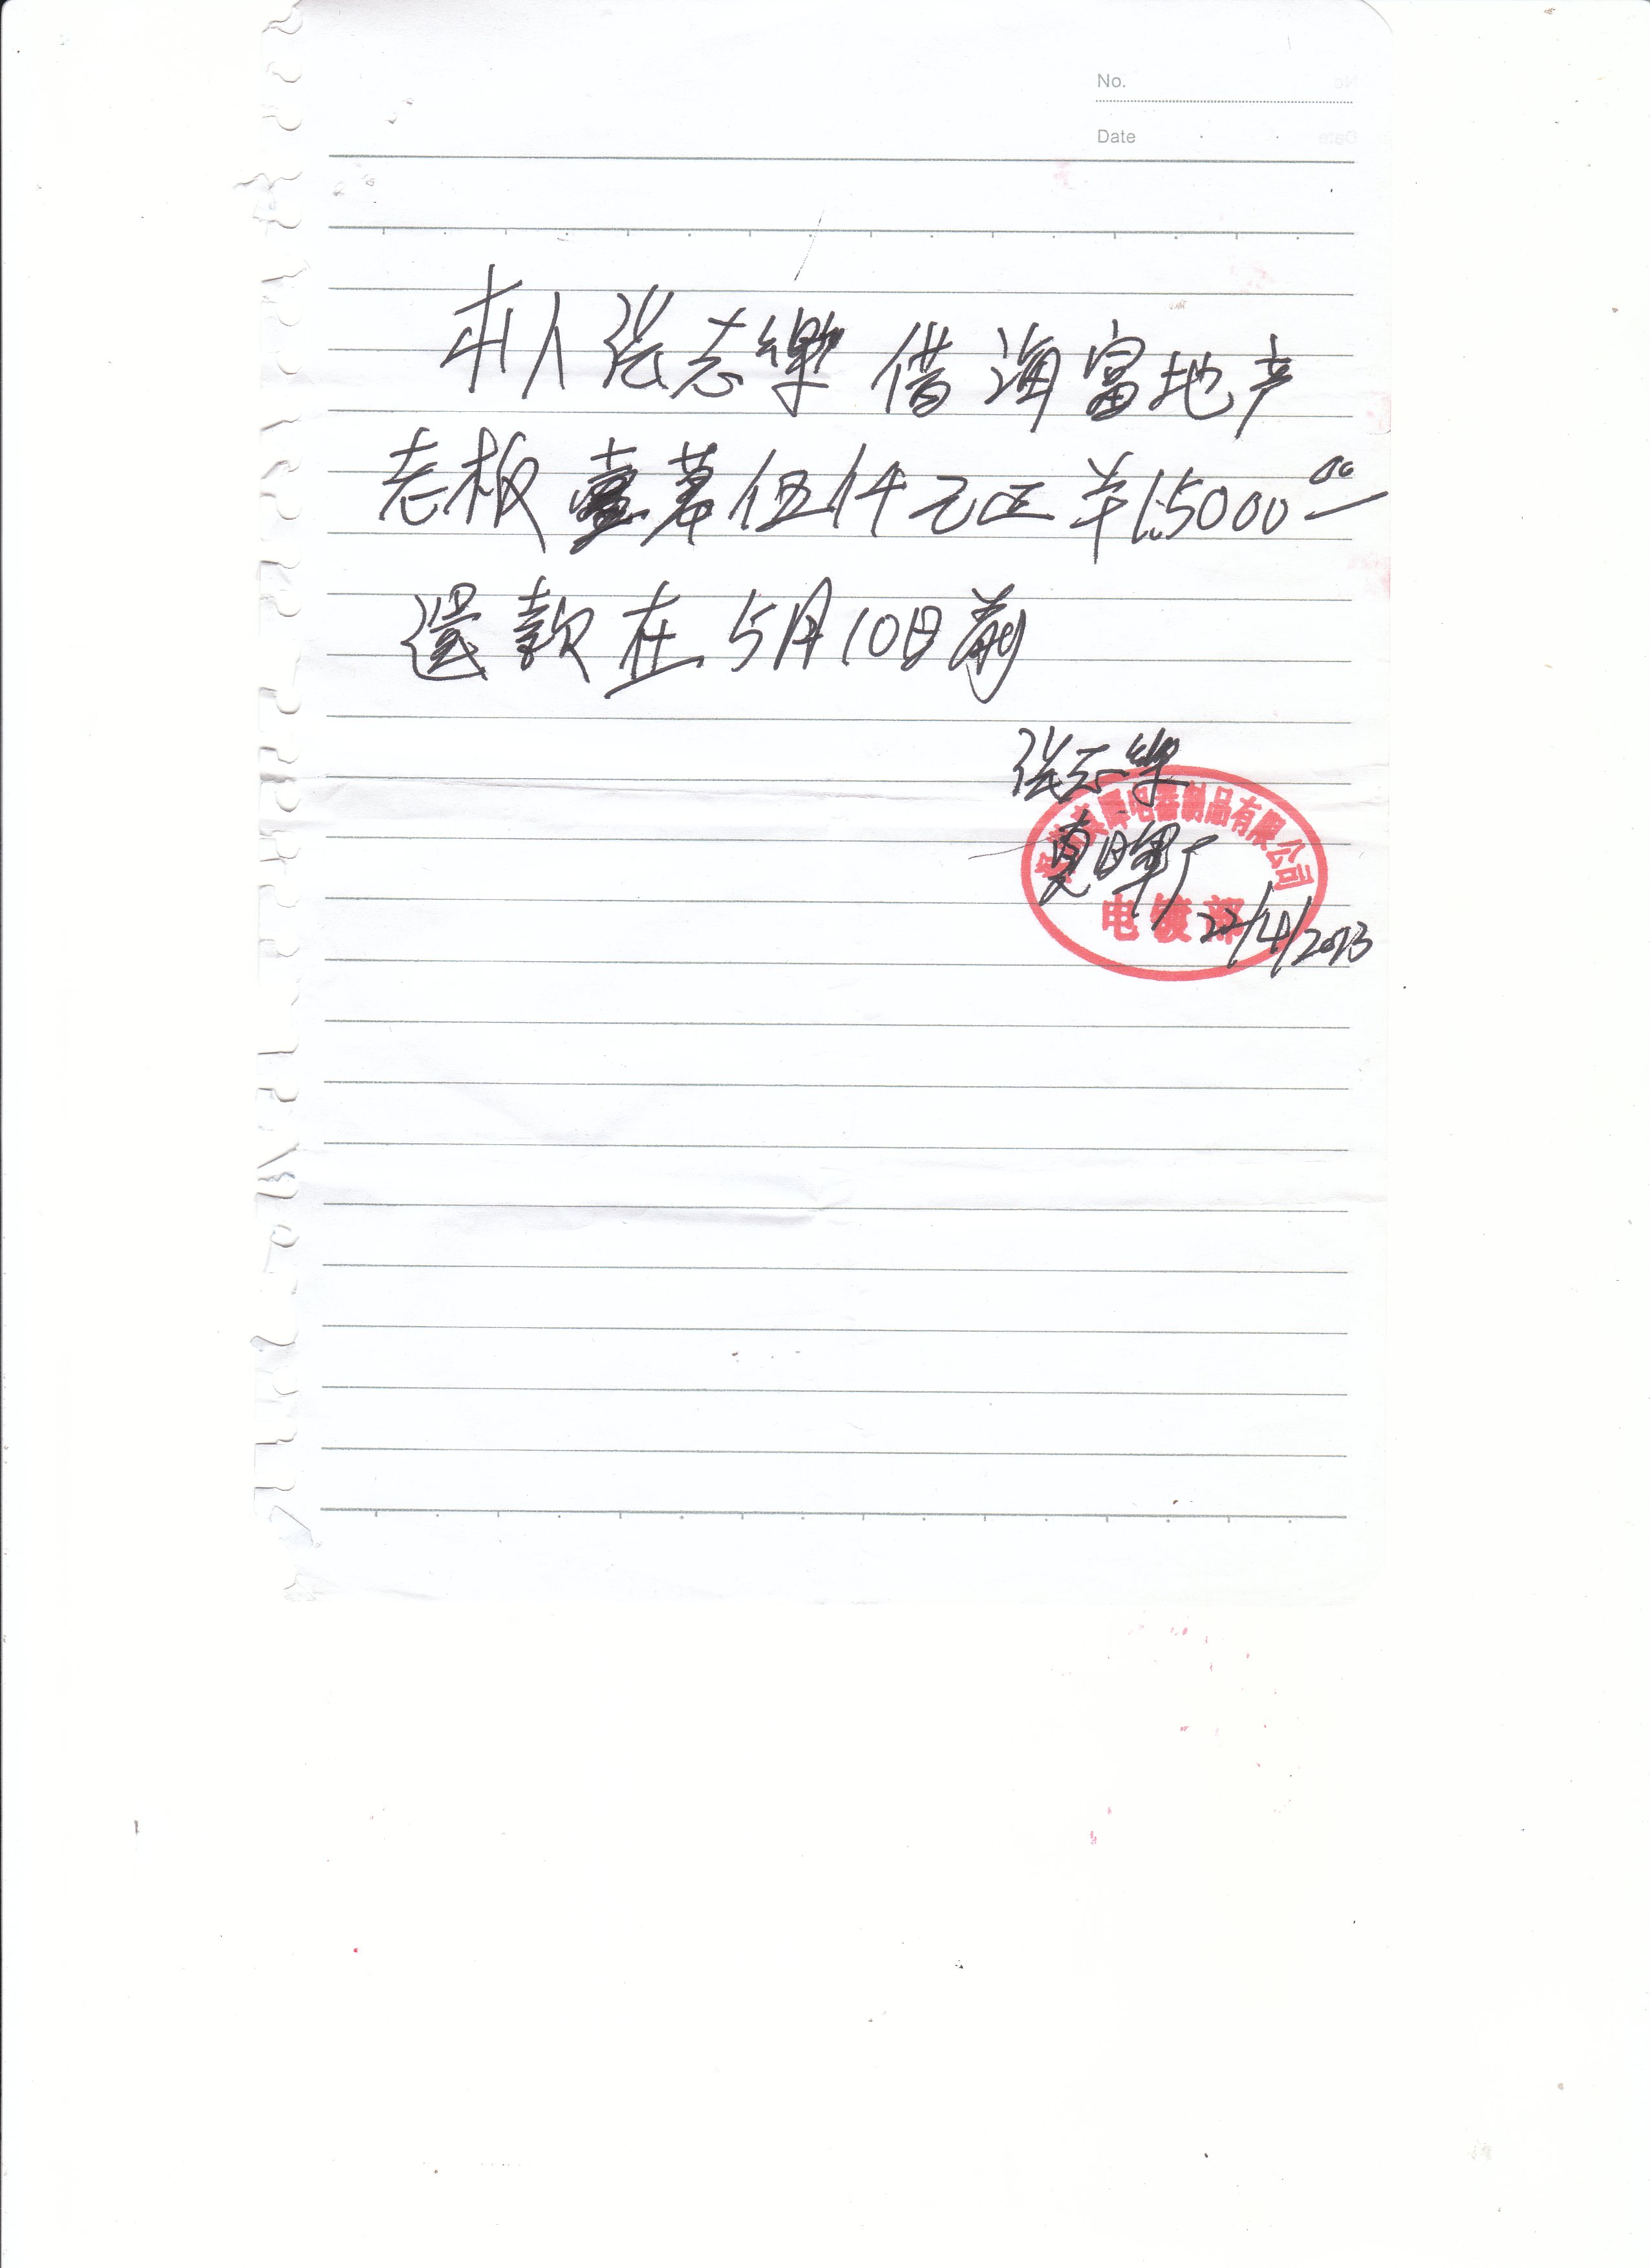 No.
Date
本人张志樂 借 海富地产
老板 壹萬伍仟元正 羊15000.00
還款在 5月10日前
张志樂
电器制品有限公司
厂
电镀部
22/4/2013